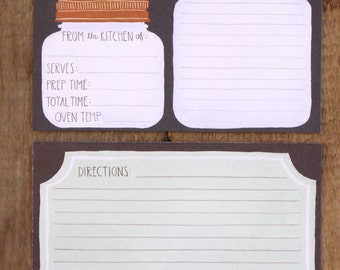 FROM the KITCHEN of:
SERVES:
PREP TIME:
TOTAL TIME:
OVEN TEMP:
DIRECTIONS: